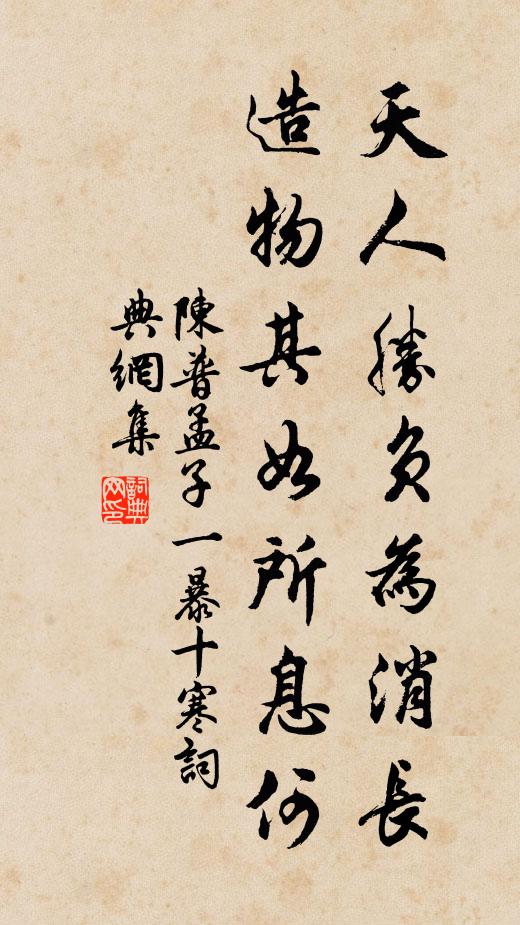 天人勝負為消長
造物其如所息何
陳普孟子一暴十寒詞
典網集
詞典网印